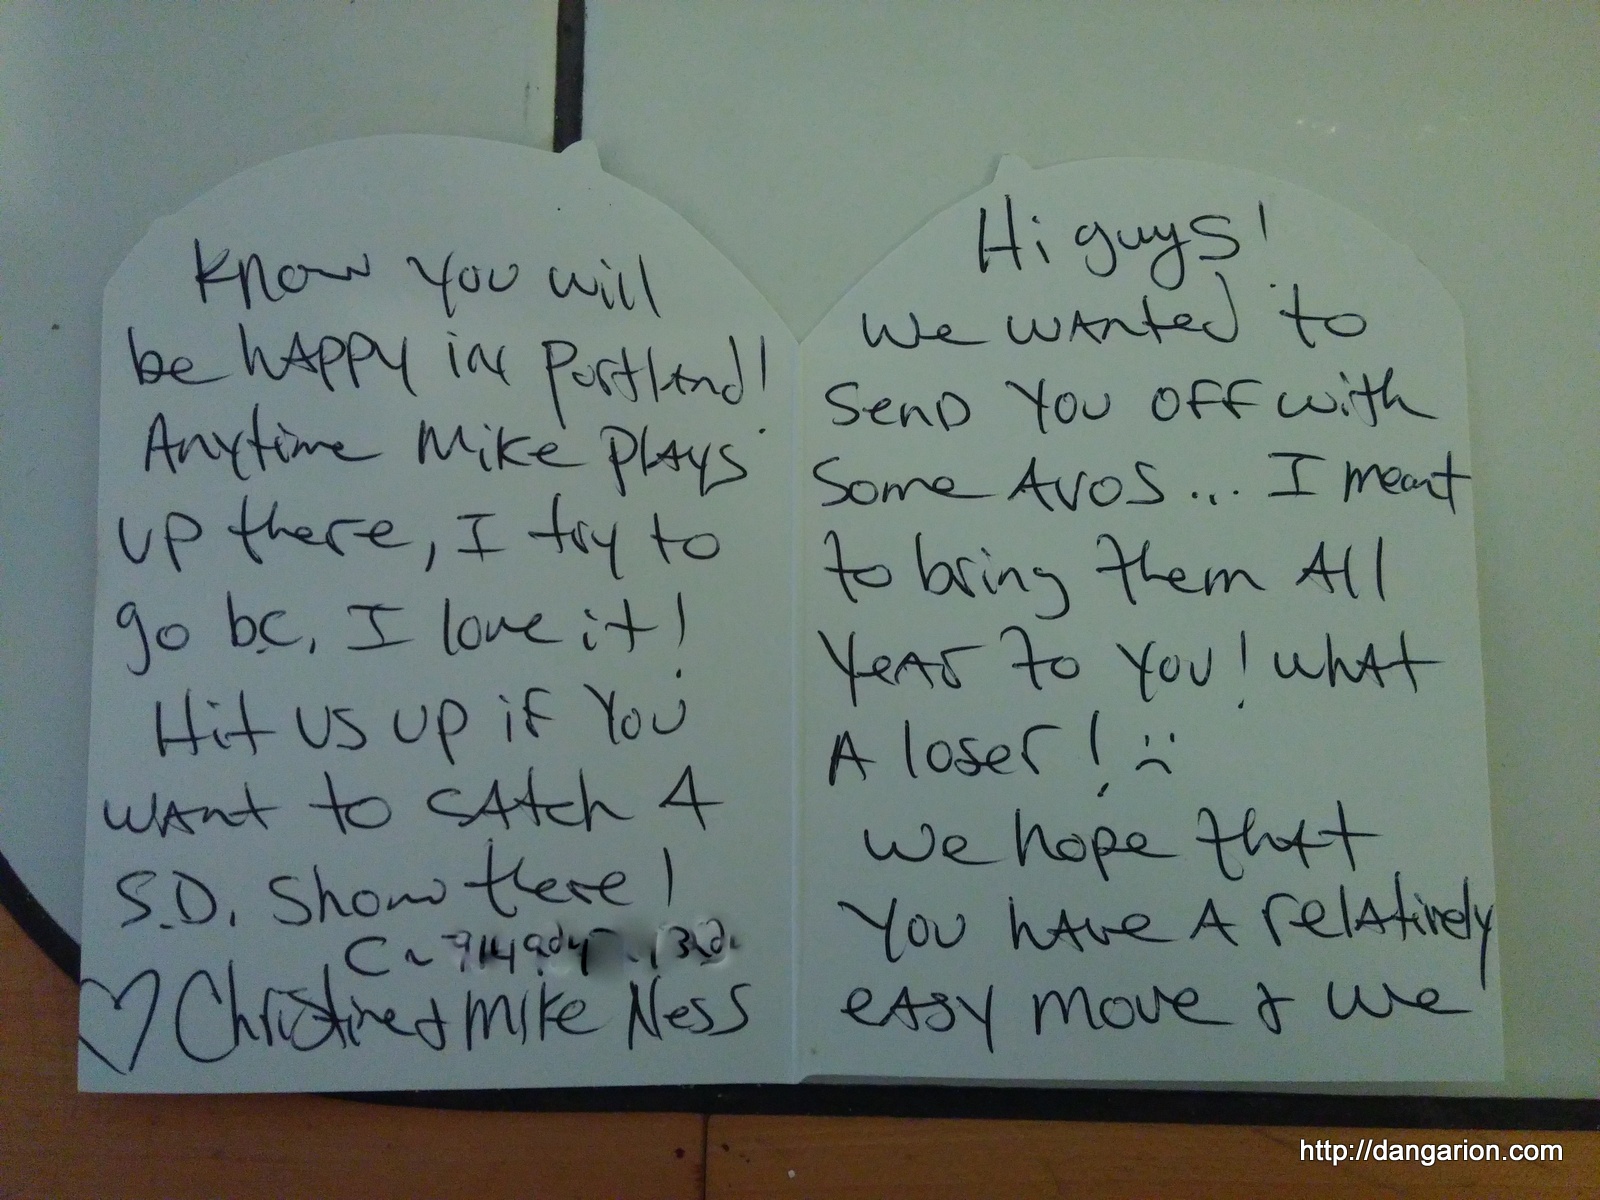 Hi guys!
We wanted to
Send You off with
Some Avos... I meant
to bring them All
Year to You! What
A loser! :(
We hope that
You have A relatively
easy move & we
Know You will
be happy in Portland!
Anytime Mike plays
up there, I try to
go bc, I love it!
Hit us up if You
want to catch A
S.D. Show there!
C~
♡ Christine & Mike Ness
http://dangarion.com